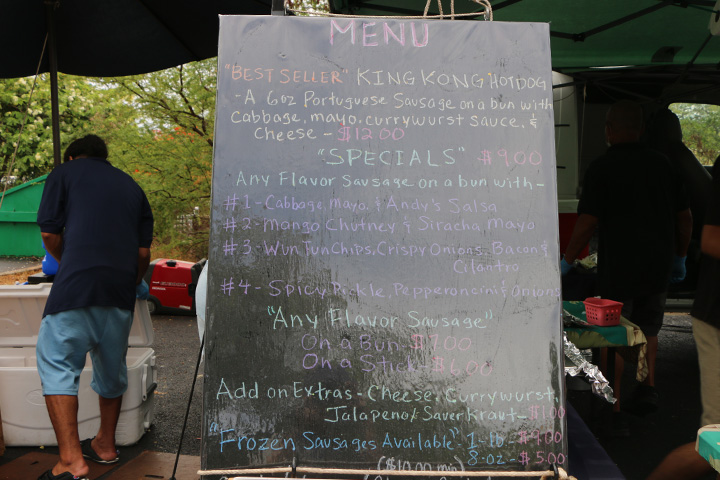 MENU
"BEST SELLER" KING KONG HOTDOG
- A 6oz Portuguese Sausage on a bun with
Cabbage, mayo, currywurst sauce, &
Cheese - $12.00
"SPECIALS" $9.00
Any Flavor Sausage on a bun with -
#1 - Cabbage, Mayo, & Andy's Salsa
#2 - Mango Chutney & Siracha Mayo
#3 - Wun Tun Chips, Crispy Onions, Bacon &
Cilantro
#4 - Spicy Pickle, Pepperoncini & Onions
"Any Flavor Sausage"
On a Bun - $7.00
On a Stick - $6.00
Add on Extras - Cheese, Currywurst,
Jalapeno/Sauer Kraut - $1.00
"Frozen Sausages Available" - 1-lb - $9.00
8-oz - $5.00
($10.00 min)